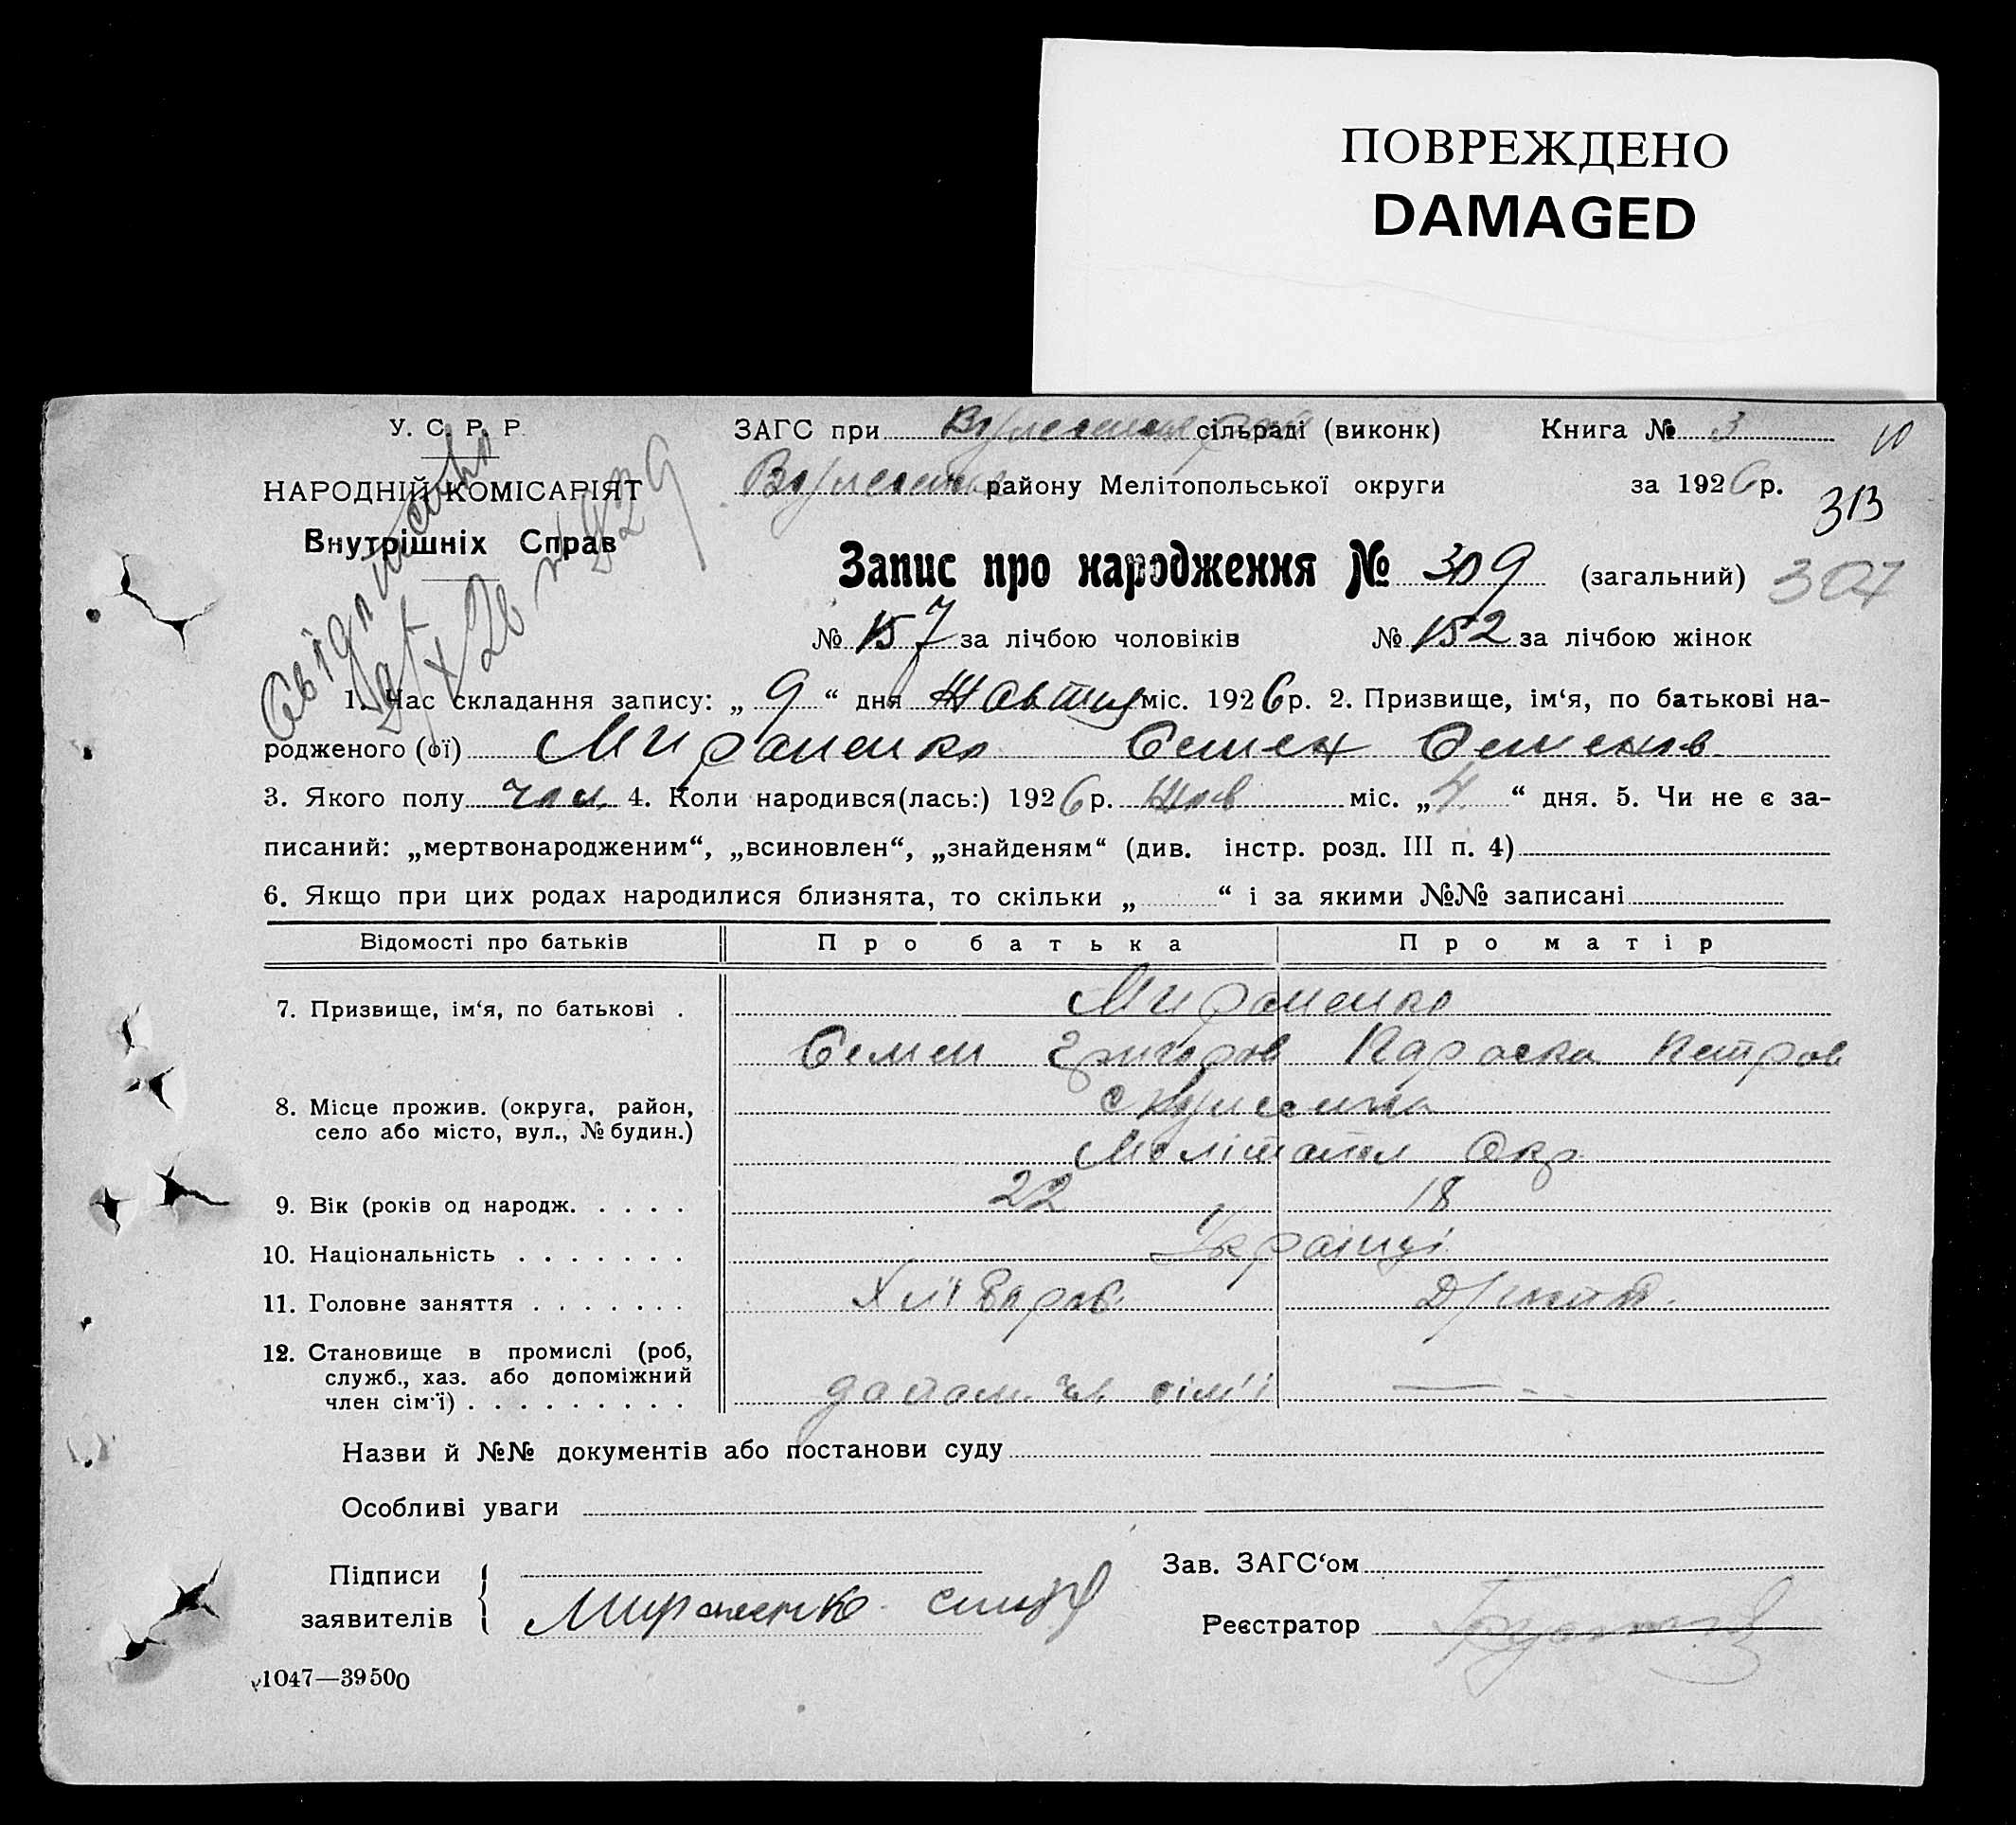 ПОВРЕЖДЕНО
DAMAGED
У. С. Р. Р.
НАРОДНІЙ КОМІСАРІЯТ
Внутрішніх Справ
ЗАГС при сільраді (виконк)
Книга № 3
10
району Мелітопольської округи
за 1926 р.
313
Запис про народження № 309 (загальний) 307
№ 157 за лічбою чоловіків № 152 за лічбою жінок
1. Час складання запису: „ 9 “ дня Жовтня міс. 1926 р. 2. Призвище, ім‘я, по батькові на-
родженого (ої) Мироненко Семен Семенов
3. Якого полу чол. 4. Коли народився(лась:) 1926 р. Жов міс. „ 4 “ дня. 5. Чи не є за-
писаний: „мертвонародженим“, „всиновлен“, „знайденям“ (див. інстр. розд. III п. 4)
6. Якщо при цих родах народилися близнята, то скільки „ “ і за якими №№ записані
Відомості про батьків Про батька Про матір
7. Призвище, ім‘я, по батькові . Мироненко
Семен Григоров Параска Петров
8. Місце прожив. (округа, район,
село або місто, вул., № будин.)
Мелітопол Окр
9. Вік (років од народж. . . . . 22 18
10. Національність . . . . . . . Українці
11. Головне заняття . . . . . . . Хлібороб
12. Становище в промислі (роб,
служб., хаз. або допоміжний
член сім‘ї) . . . . . . . . . допом. чл. сім'ї —
Назви й №№ документів або постанови суду
Особливі уваги
Підписи
заявителів
Мироненко
Зав. ЗАГС‘ом
Реєстратор
1047—39500